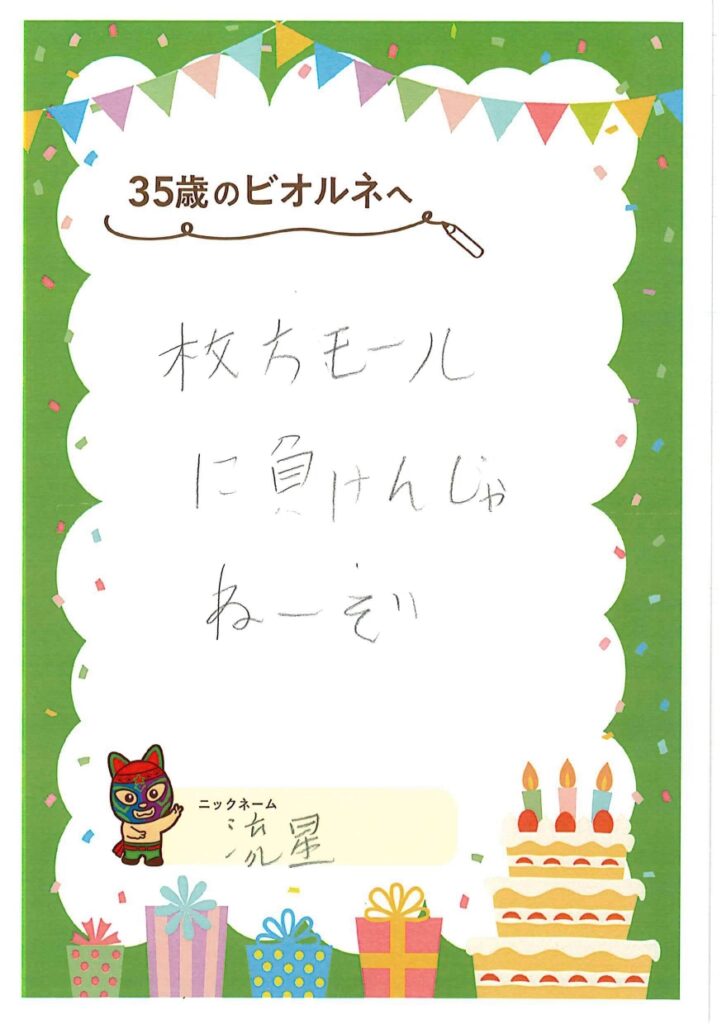 35歳のビオルネへ
枚方モール
に負けんじゃ
ねーぞ
ニックネーム
流星